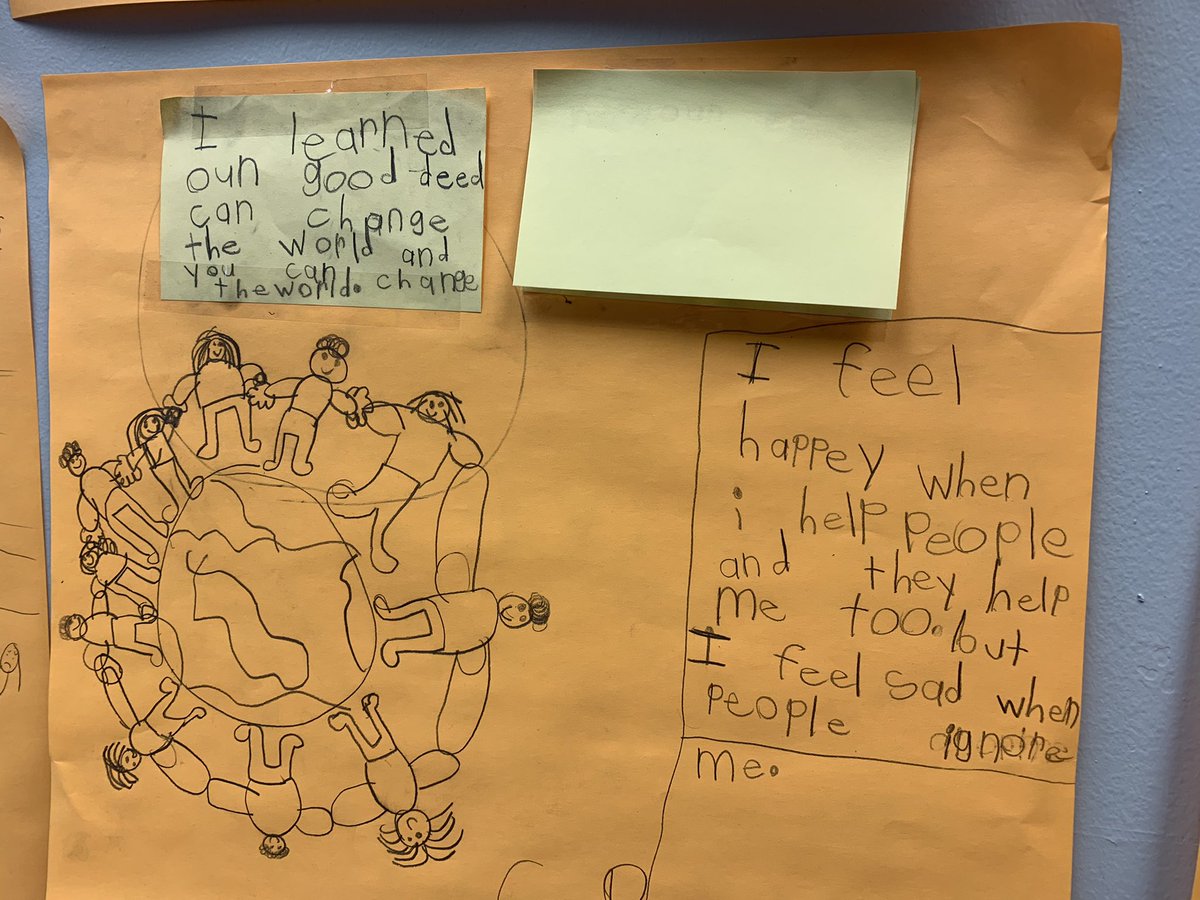 I learned
oun good deed
can change
the world and
you can change
the world.
I feel
happey when
i help people
and they help
me too. but
I feel sad when
people ignore
me.